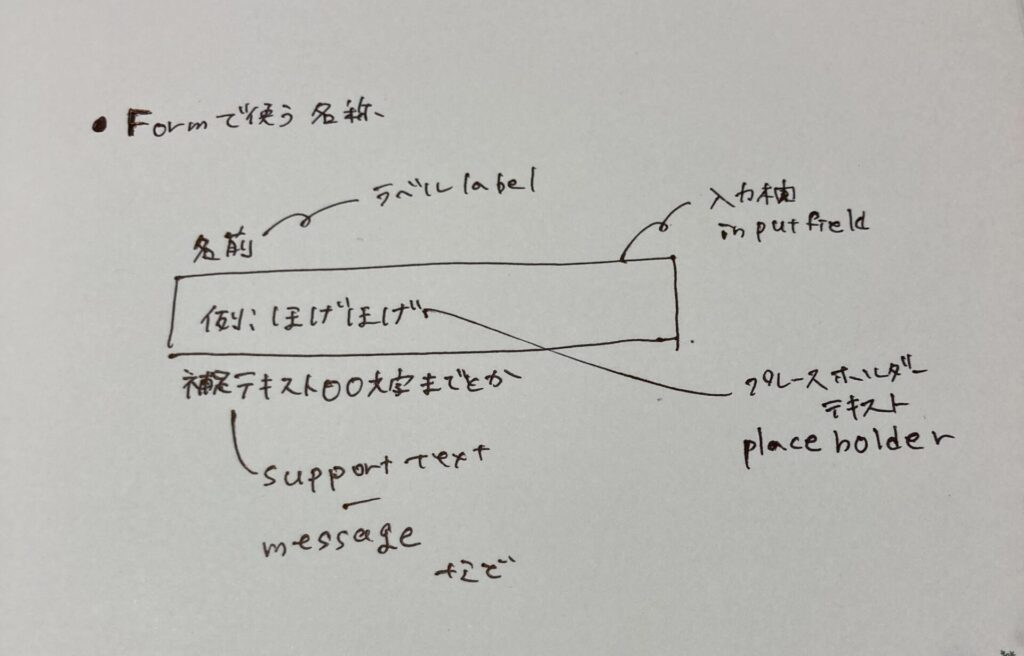 • Formで使う名称、
ラベル label
入力欄
input field
名前
例：ほげほげ
補足テキスト〇〇文字までとか
プレースホルダー
テキスト
place holder
support text
message
など